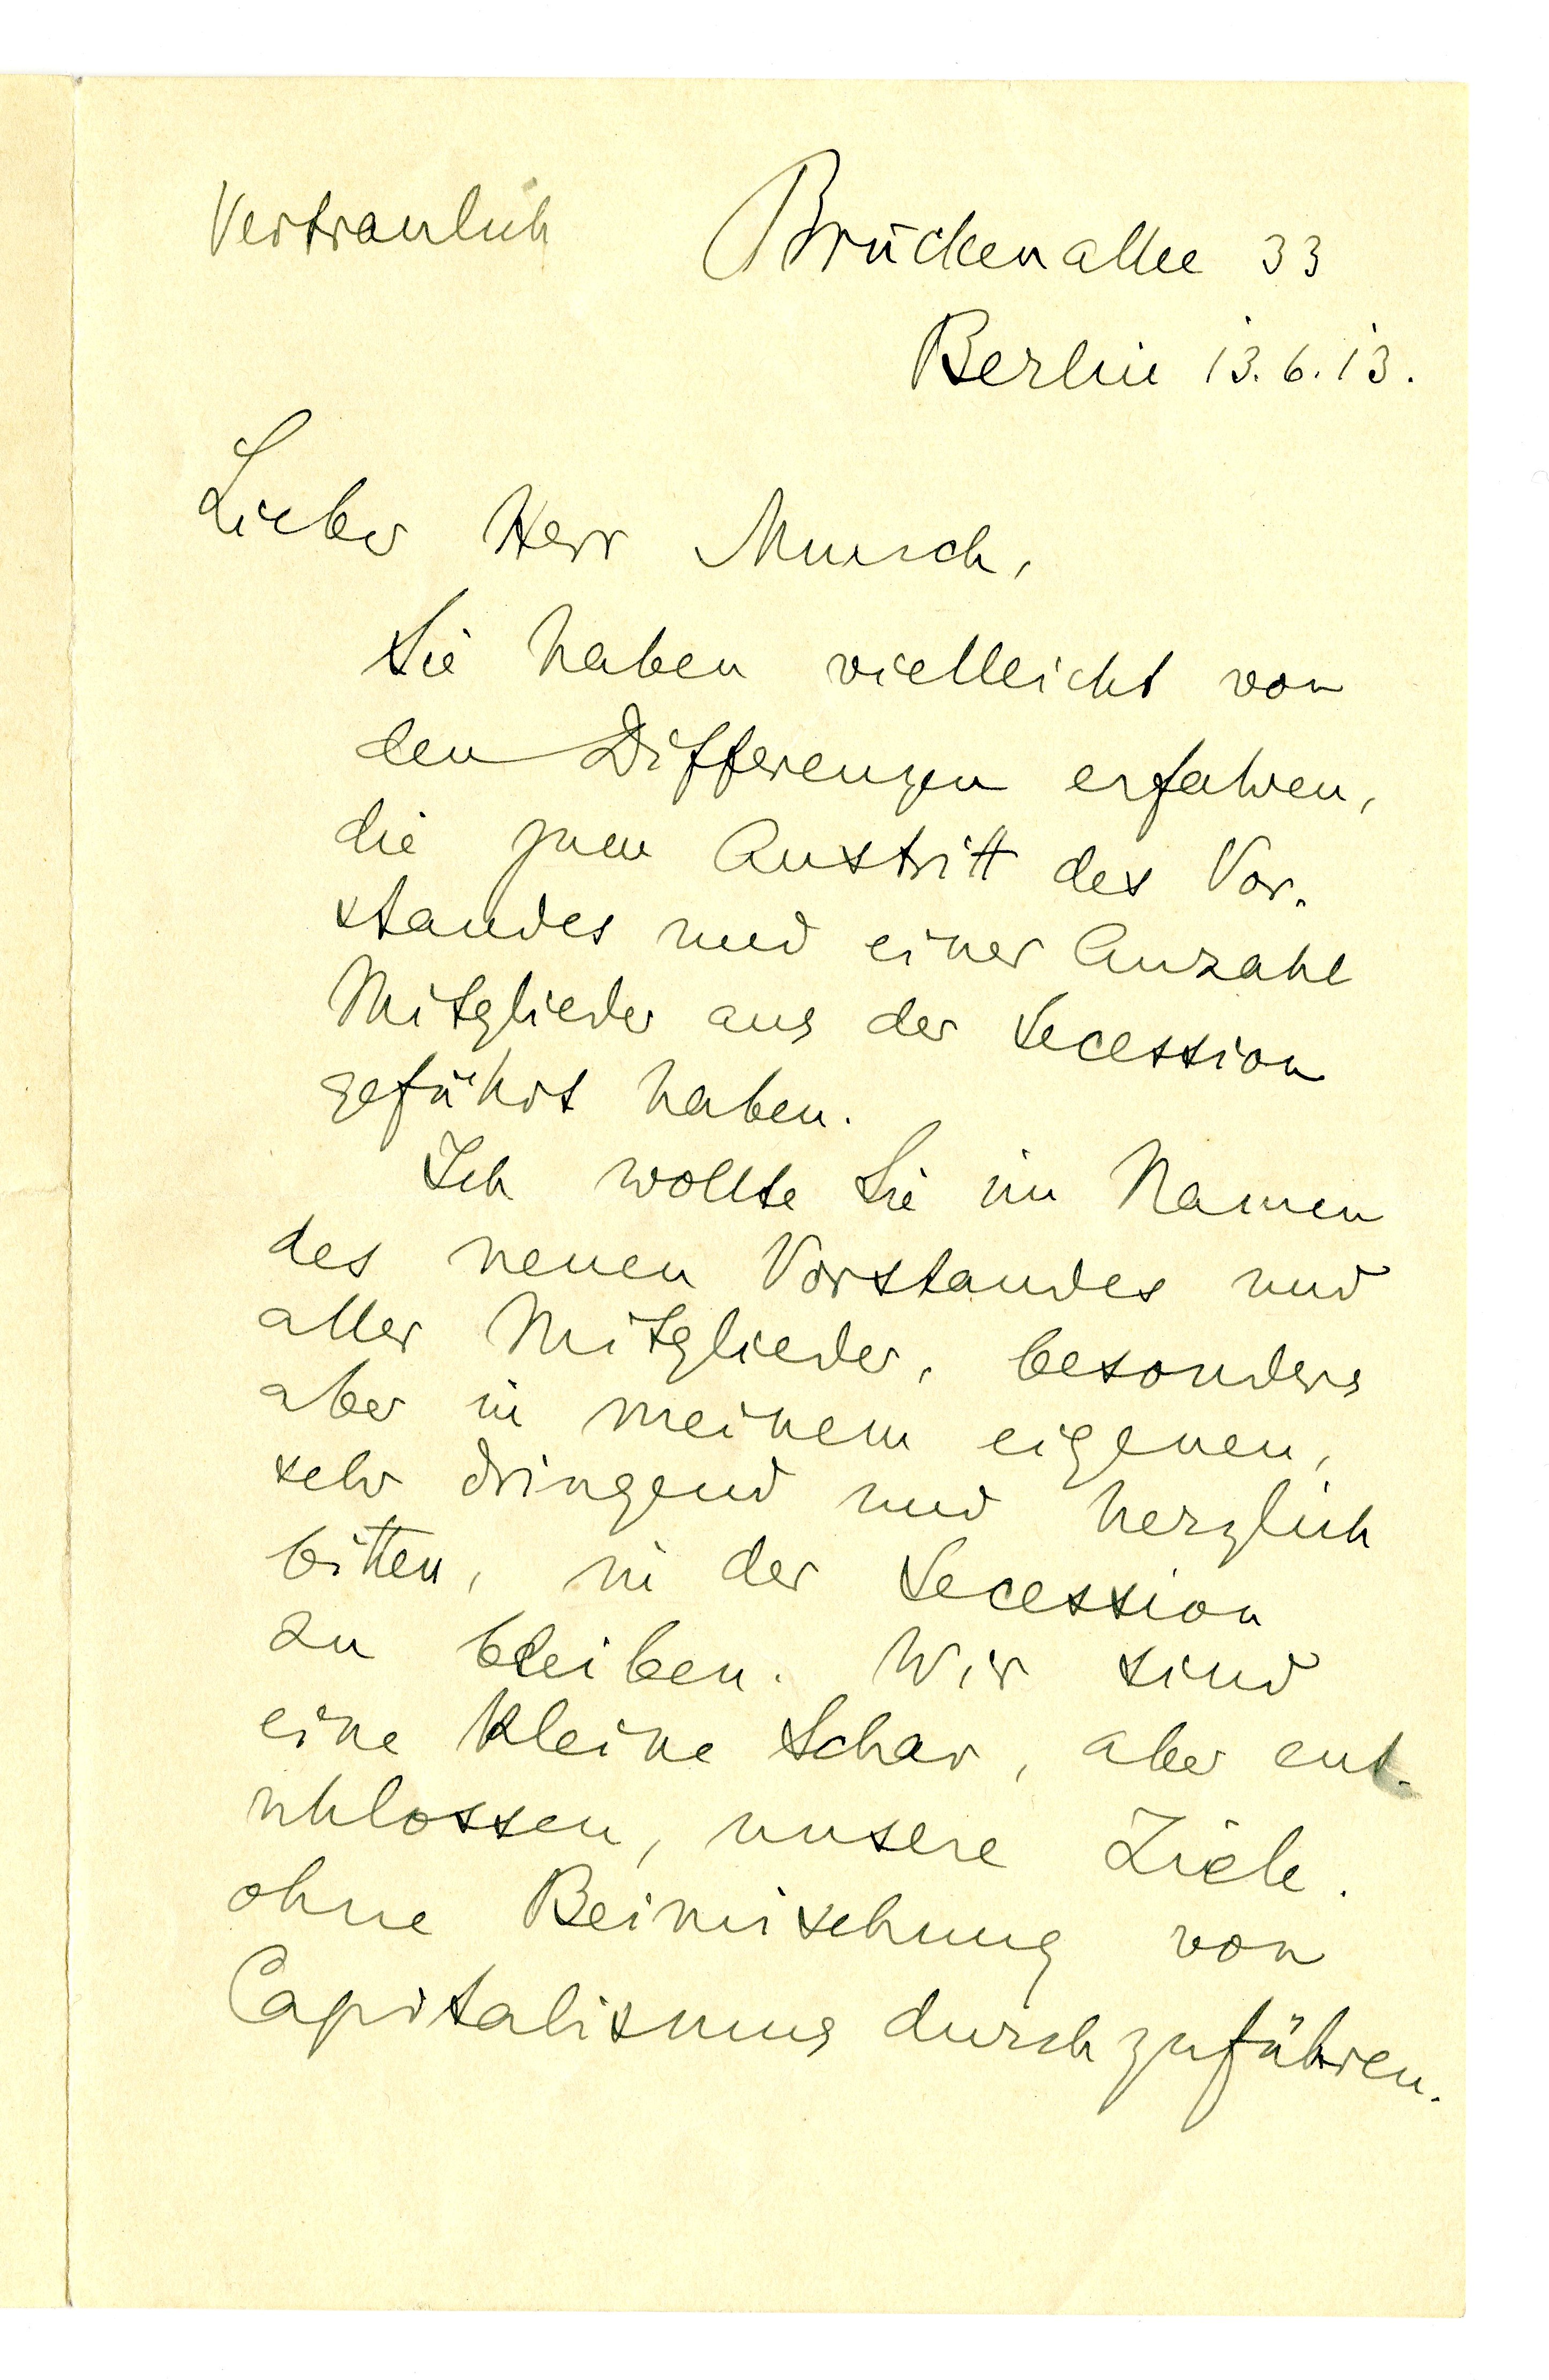 Vertraulich
Brückenallee 33
Berlin 13.6.13.
Lieber Herr Munch,
Sie haben vielleicht von
den Differenzen erfahren,
die zum Austritt des Vor-
standes und einer Anzahl
Mitglieder aus der Secession
geführt haben.
Ich wollte Sie im Namen
des neuen Vorstandes und
aller Mitglieder, besonders
aber in meinem eigenen,
sehr dringend und herzlich
bitten, in der Secession
zu bleiben. Wir sind
eine kleine Schar, aber ent-
schlossen, unsere Ziele.
ohne Beimischung von
Capitalismus durchzuführen.